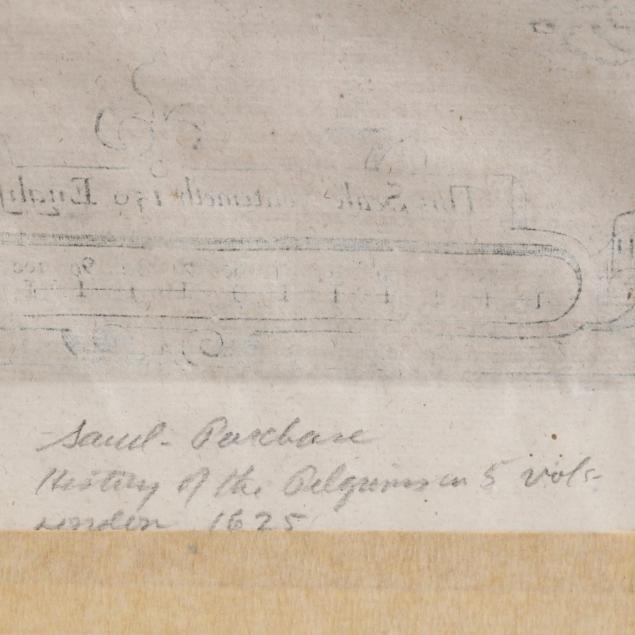 This Scale conteineth 150 English
Saml- Purchase
History of the Pilgrims in 5 vols-
London 1625